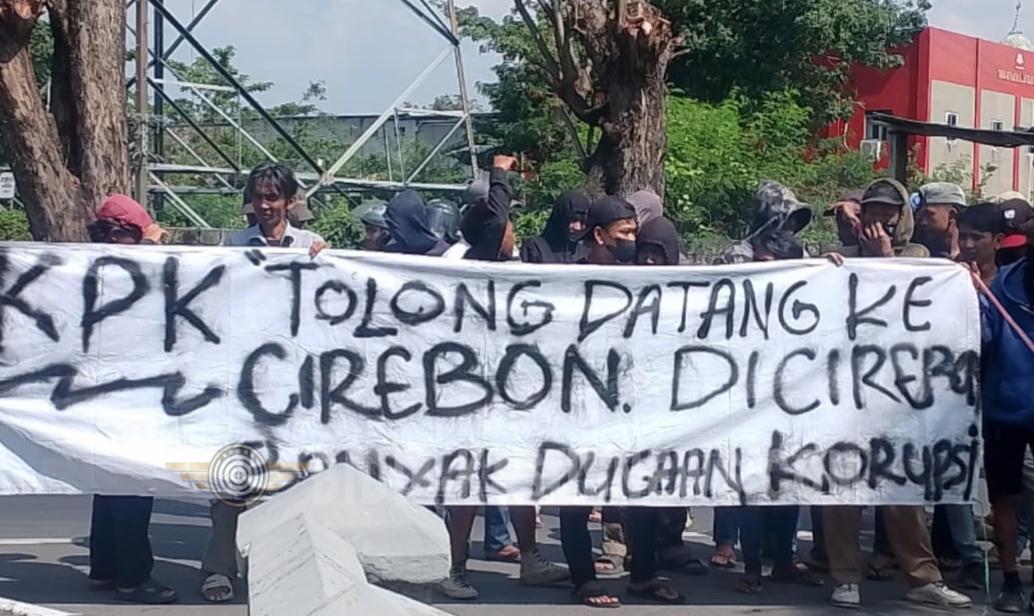 KPK "TOLONG DATANG KE
CIREBON! DICIREBON
BANYAK DUGAAN KORUPSI